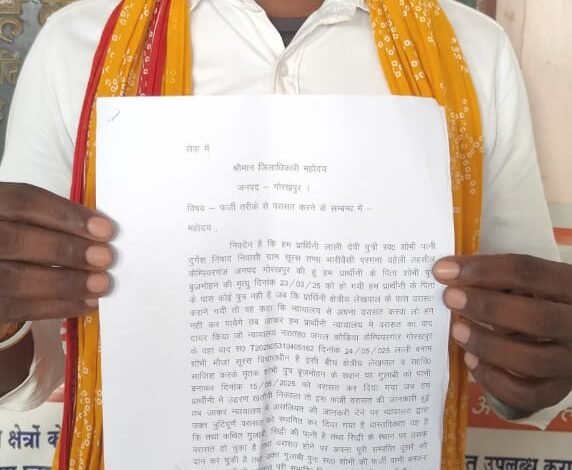 सेवा में
श्रीमान जिलाधिकारी महोदय
जनपद – गोरखपुर।
विषय – फर्जी तरीके से वरासत करने के सम्बन्ध में –
महोदय,
निवेदन है कि हम प्रार्थिनी लाली देवी पुत्री स्व0 शोभी पत्नी
दुर्गेश निषाद निवासी ग्राम सूरस तप्पा मारीचैसी परगना हवेली तहसील
कैम्पियरगंज जनपद गोरखपुर की हूं हम प्रार्थिनी के पिता शोभी पुत्र
बृजमोहन की मृत्यु दिनांक 23/03/25 को हो गयी हम प्रार्थिनी के पिता
के पास कोई पुत्र नही है जब कि प्रार्थिनी क्षेत्रीय लेखपाल के पास वरासत
कराने गयी तो वह कहा कि न्यायालय से अपना वरासत करवा लो हम
नही कर पायेंगे तब जाकर हम प्रार्थिनी न्यायालय में वरासत का वाद
दायर किया जो न्यायालय ना0तह0 जंगल कौडिया कैम्पियरगंज गोरखपुर
के वहा वाद स0 T202505310405162 दिनांक 24/05/025 लाली बनाम
शोभी मौजा सूरस विचाराधीन है इसी बीच क्षेत्रीय लेखपाल व रा0नि0
साजिश करके मृतक शोभी पुत्र बृजमोहन के स्थान पर गुलाबी को पत्नी
बनाकर दिनांक 15/05/2025 को वरासत कर दिया गया जब हम
प्रार्थिनी ने उद्धरण खतौनी निकाला तो इस फर्जी वरासत की जानकारी हुई
तब जाकर न्यायालय में असलियत की जानकारी देने पर न्यायालय द्वारा
उक्त त्रुटिपूर्ण वरासत को स्थगित कर दिया गया है वास्तविकता यह है
कि तथा कथित गुलाबी, सिद्दी की पत्नी है तथा सिद्दी के स्थान पर उसका
वरासत हो चुका है वरासत होने पर अपना पूरी सम्पत्ति दूसरे को
दान कर चुकी है तब उक्त गुलाबी पुनः स्व0 शोभी की फर्जी पत्नी बनकर
क्षेत्रों के
उपलब्ध